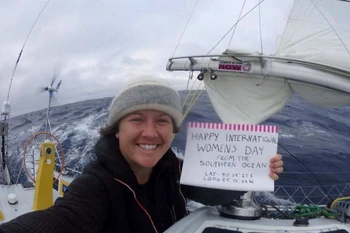 NOW
HAPPY INTERNATIONAL
WOMEN'S DAY
FROM THE
SOUTHERN OCEAN